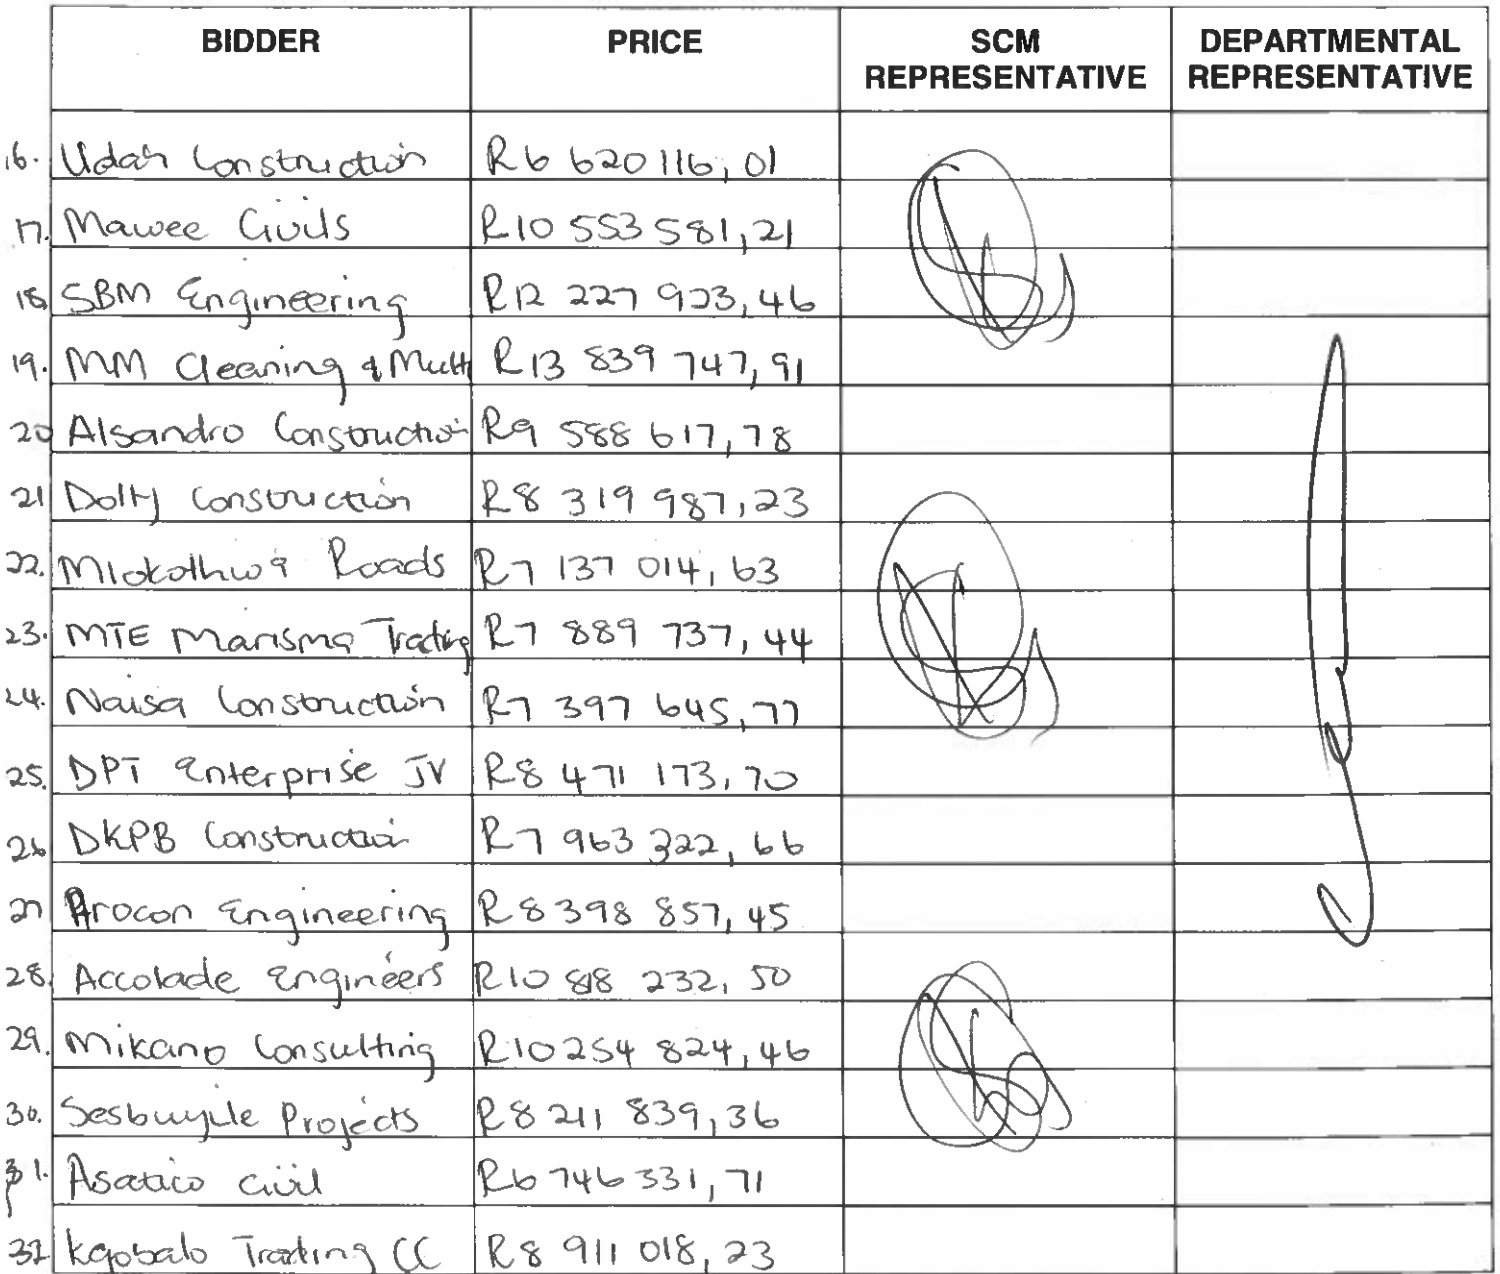 BIDDER PRICE SCM REPRESENTATIVE DEPARTMENTAL REPRESENTATIVE
16. Udah Construction R6 620 116,01
17. Mawee Civils R10 553 581,21
18. SBM Engineering R12 227 923,46
19. MM Cleaning & Multi R13 839 747,91
20 Alsandro Construction R9 588 617,78
21 Dolly Construction R8 319 987,23
22. Mlokothwa Roads R7 137 014,63
23. MTE Marisma Trading R7 889 737,44
24. Naisa Construction R7 397 645,77
25. DPT Enterprise JV R8 471 173,70
26 DKPB Construction R7 963 322,66
27 Arocon Engineering R8 398 857,45
28. Accolade Engineers R10 818 232,50
29. Mikano Consulting R10 254 824,46
30. Projects R8 211 839,36
31. Asatico Civil R6 746 331,71
32 Kgobalo Trading CC R8 911 018,23